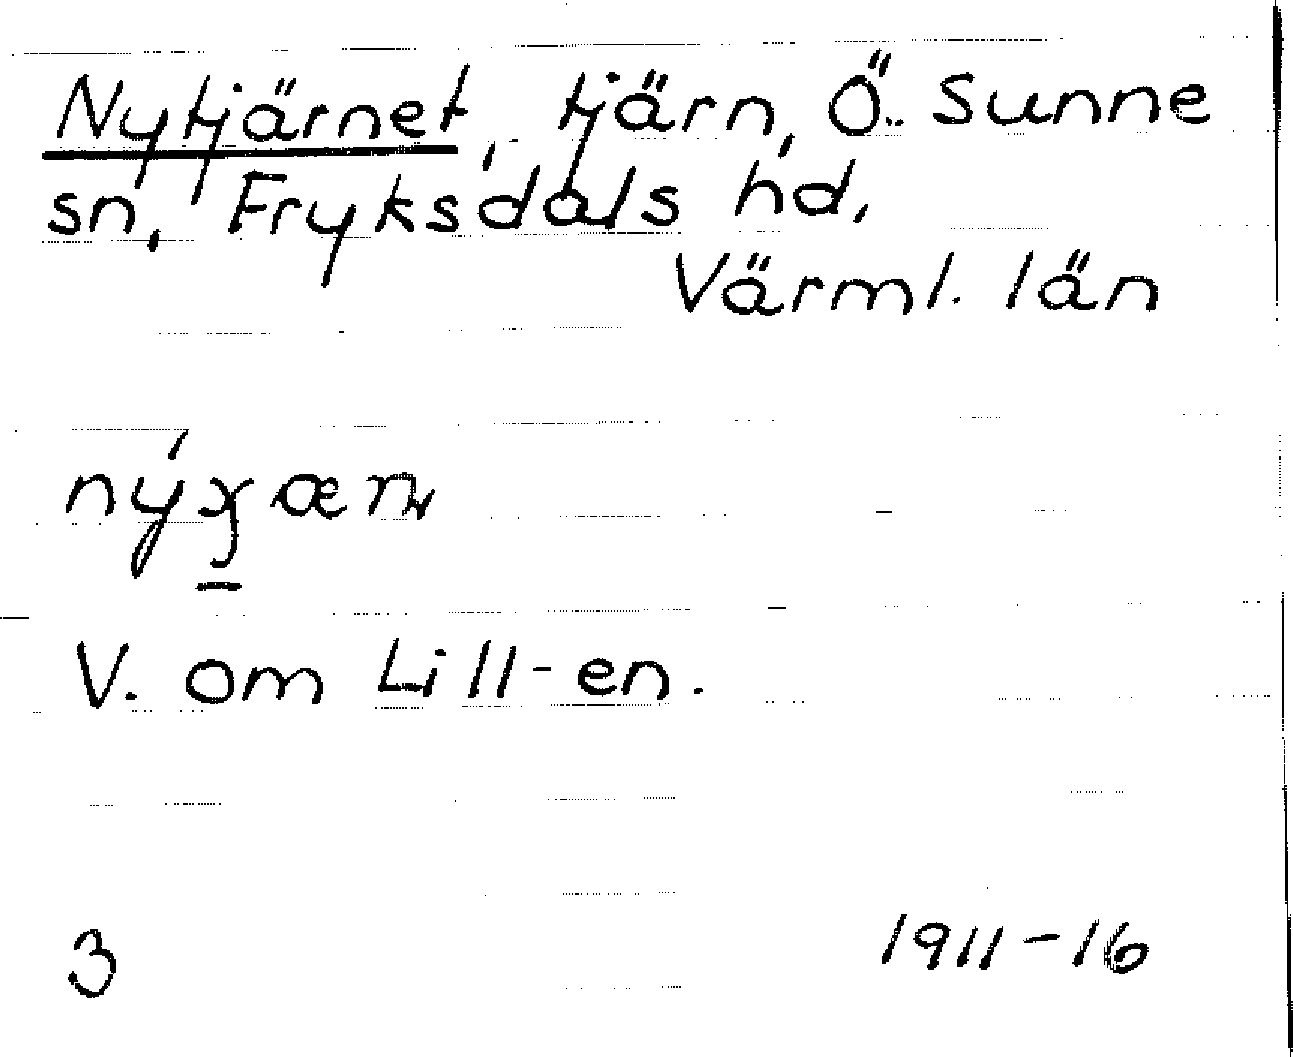 Nytjärnet, tjärn, Ö. Sunne
sn, Fryksdals hd,
Värml. län
V. om Lill-en.
3
1911-16